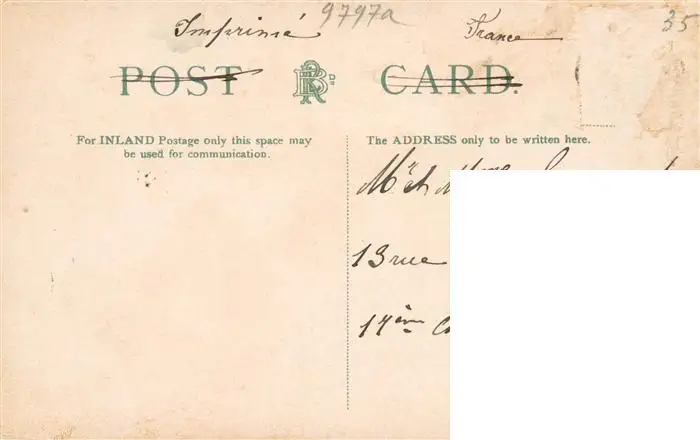 9797a
35
Imprimé
France
POST CARD.
For INLAND Postage only this space may
be used for communication.
The ADDRESS only to be written here.
Mr et M
13 rue
17ème